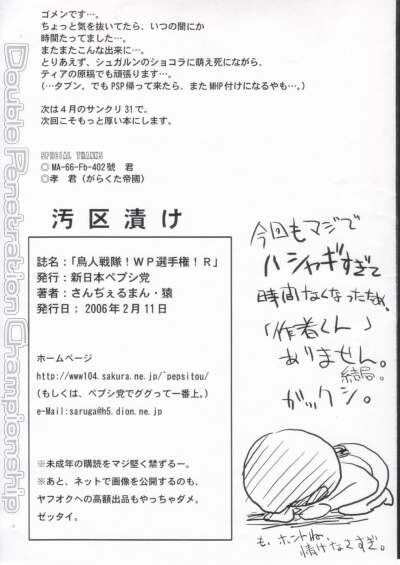 ゴメンです…。
ちょっと気を抜いてたら、いつの間にか
時間たってました…。
またまたこんな出来に…。
とりあえず、シュガルンのショコラに萌え死にながら、
ティアの原稿でも頑張ります…。
(…タブン。でもPSP帰って来たら、またMHP付けになるやも…。)
次は4月のサンクリ31で。
次回こそもっと厚い本にします。
SPECIAL THANKS
◎MA-66-Fb-402號 君
◎孝 君(がらくた帝國)
汚区漬け
誌名:「鳥人戦隊!WP選手権!R」
発行:新日本ペプシ党
著者:さんぢぇるまん・猿
発行日: 2006年2月11日
ホームページ
http://www104.sakura.ne.jp/~pepsitou/
(もしくは、ペプシ党でググって一番上。)
e-Mail:saruga@h5.dion.ne.jp
※未成年の購読をマジ堅く禁ずるー。
※あと、ネットで画像を公開するのも、
ヤフオクへの高額出品もやっちゃダメ。
ゼッタイ。
Double Penetration Championship
今回もマジで
ハシャギすぎて
時間なくなったため、
「作者くん」
ありません。
結局。
ガックシ。
も、ホントね、情けなくすぎ。